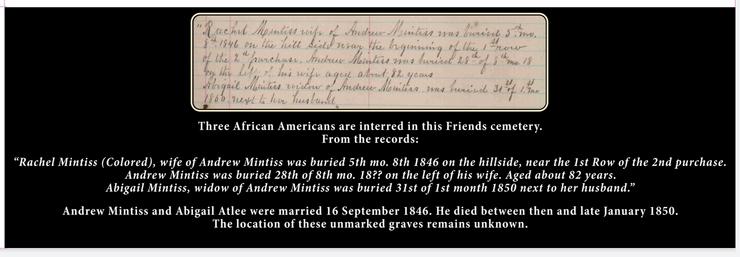 "Rachel Mintiss wife of Andrew Mintiss was buried 5th mo.
8th 1846 on the hill side near the beginning of the 1st row
of the 2d purchase. Andrew Mintiss was buried 28th of 8th mo 18
on the left of his wife aged about 82 years
Abigail Mintiss widow of Andrew Mintiss was buried 31st of 1st mo
1850 next to her husband.
Three African Americans are interred in this Friends cemetery.
From the records:
“Rachel Mintiss (Colored), wife of Andrew Mintiss was buried 5th mo. 8th 1846 on the hillside, near the 1st Row of the 2nd purchase.
Andrew Mintiss was buried 28th of 8th mo. 18?? on the left of his wife. Aged about 82 years.
Abigail Mintiss, widow of Andrew Mintiss was buried 31st of 1st month 1850 next to her husband.”
Andrew Mintiss and Abigail Atlee were married 16 September 1846. He died between then and late January 1850.
The location of these unmarked graves remains unknown.